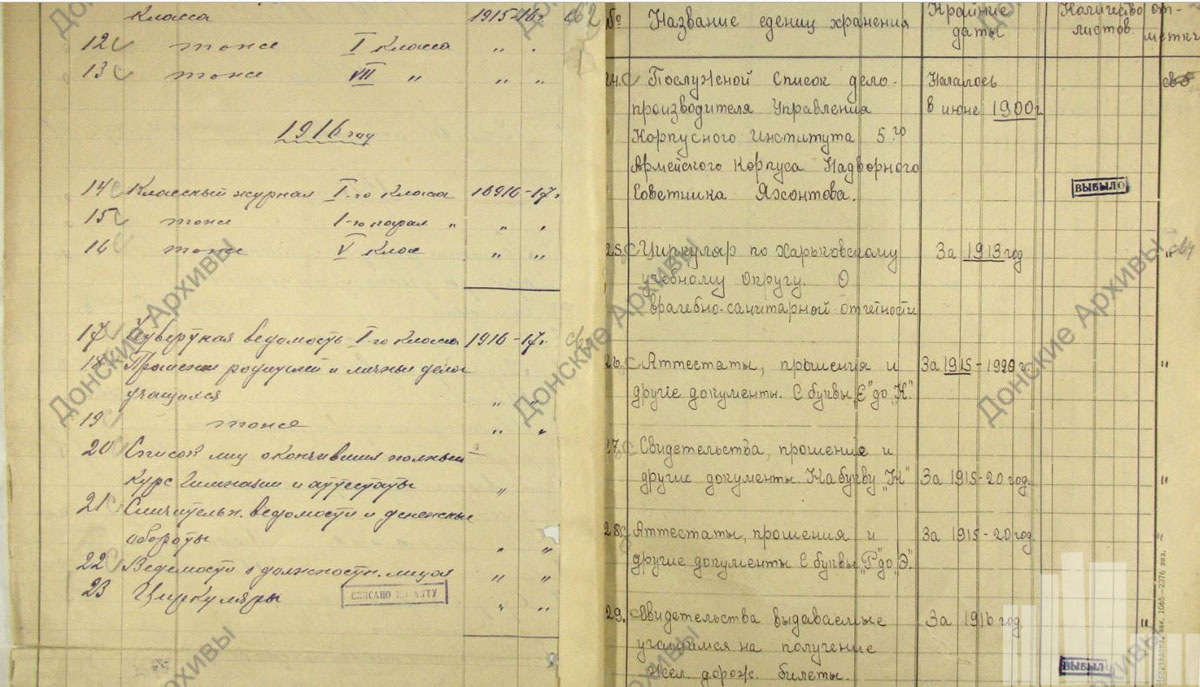 класса 1915-16г. св 2
12 тоже I класса " "
13 тоже VII " " "
1916 год
14 Классный журнал I-го класса 16916-17г.
15 тоже I-го парал " " "
16 тоже V клас " "
17 Четвертная ведомость I-го класса 1916-17г.
18 Прошения родителей и личные дела
учащихся " "
19 тоже " "
20 Список лиц окончивших полный
курс гимназии и аттестаты "
21 Сличительн. ведомости и денежные
обороты " "
22 Ведомости о должностн. лицах " "
23 Циркуляры " "
СПИСАНО ПО АКТУ
№ Название едениц хранения Крайние даты Количество листов От-метки
24. Послужной список дело- Началось
производителя Управления в июне 1900г
Корпусного Института 5го
Армейского Корпуса Надворного
Советника Яхонтова. ВЫБЫЛО
25. Циркуляр по Харьковскому За 1913 год "
учебному Округу. О
врачебно-санитарной отчетности
26. Аттестаты, прошения и За 1915-1920г "
другие документы. С буквы „Е" до „К".
27. Свидетельства, прошение и
другие документы. На букву „К" За 1915-20 год. "
28. Аттестаты, прошения и За 1915-20 год. "
другие документы С буквы „Р" до „Э".
29. Свидетельства выдаваемые За 1916 год. "
учащимся на получение
жел. дорож. билеты. ВЫБЫЛО
Донские Архивы
Донские Архивы
Донские Архивы
Донские Архивы